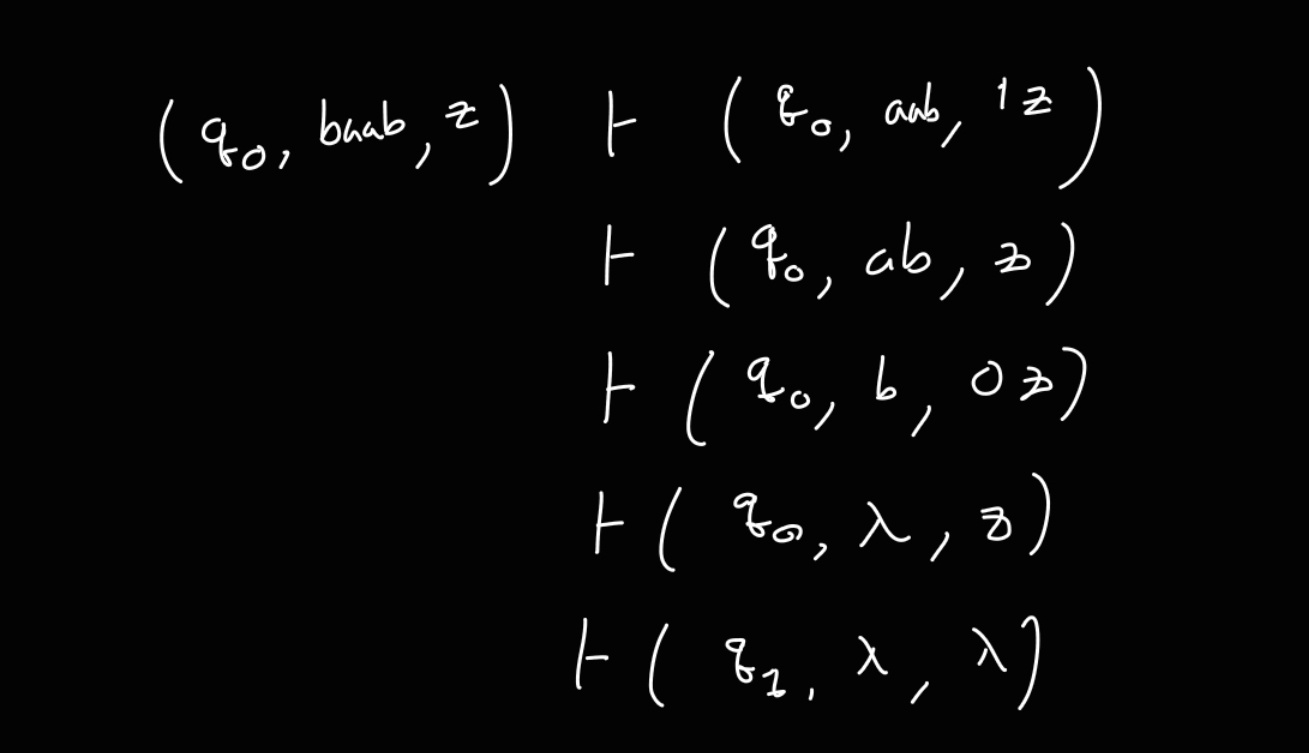 (q₀, baab, z) ⊢ (q₀, aab, 1z)
⊢ (q₀, ab, z)
⊢ (q₀, b, 0z)
⊢ (q₀, λ, z)
⊢ (q₁, λ, λ)